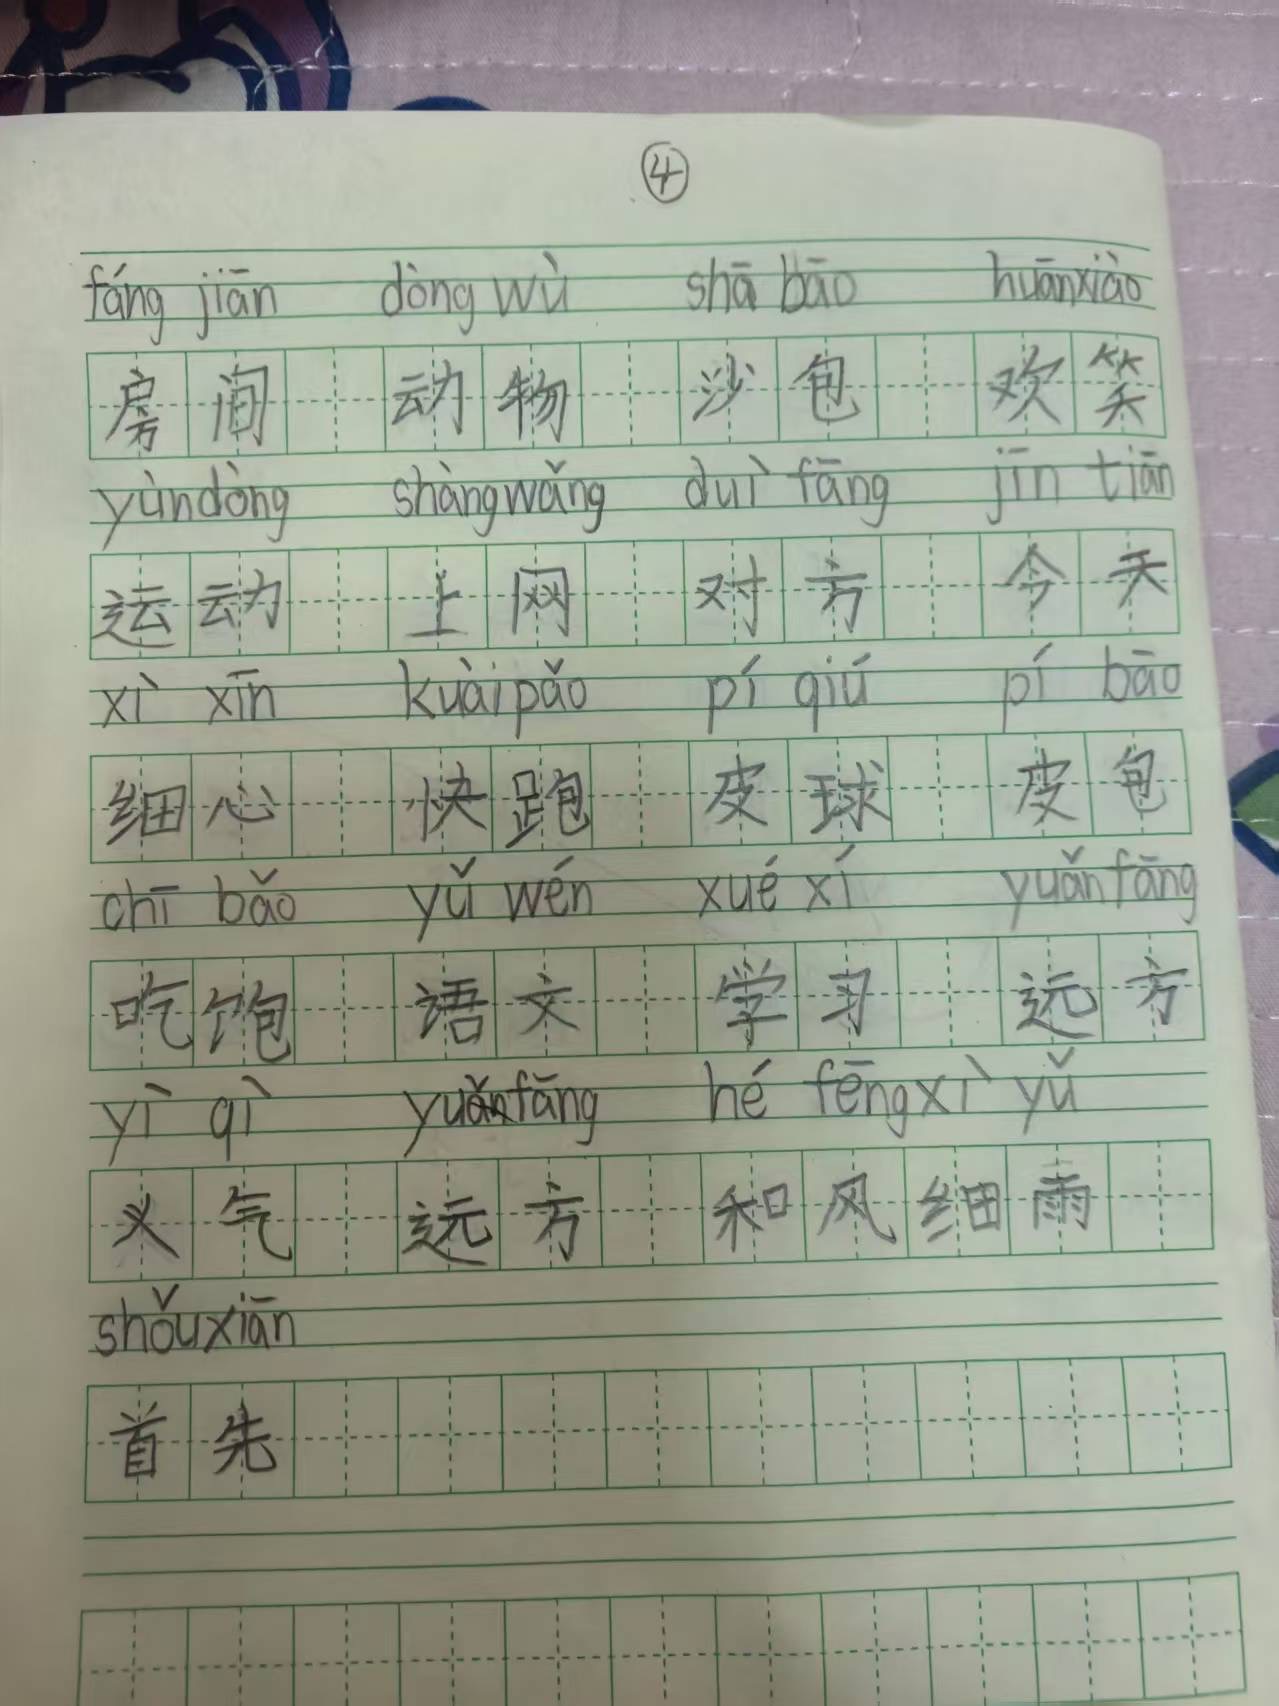 ④
fáng jiān dòng wù shā bāo huānxiào
房间 动物 沙包 欢笑
yùndòng shàngwǎng duì fāng jīn tiān
运动 上网 对方 今天
xì xīn kuàipǎo pí qiú pí bāo
细心 快跑 皮球 皮包
chī bǎo yǔ wén xué xí yuǎnfāng
吃饱 语文 学习 远方
yì qì yuǎnfāng hé fēngxì yǔ
义气 远方 和风细雨
shǒuxiān
首先